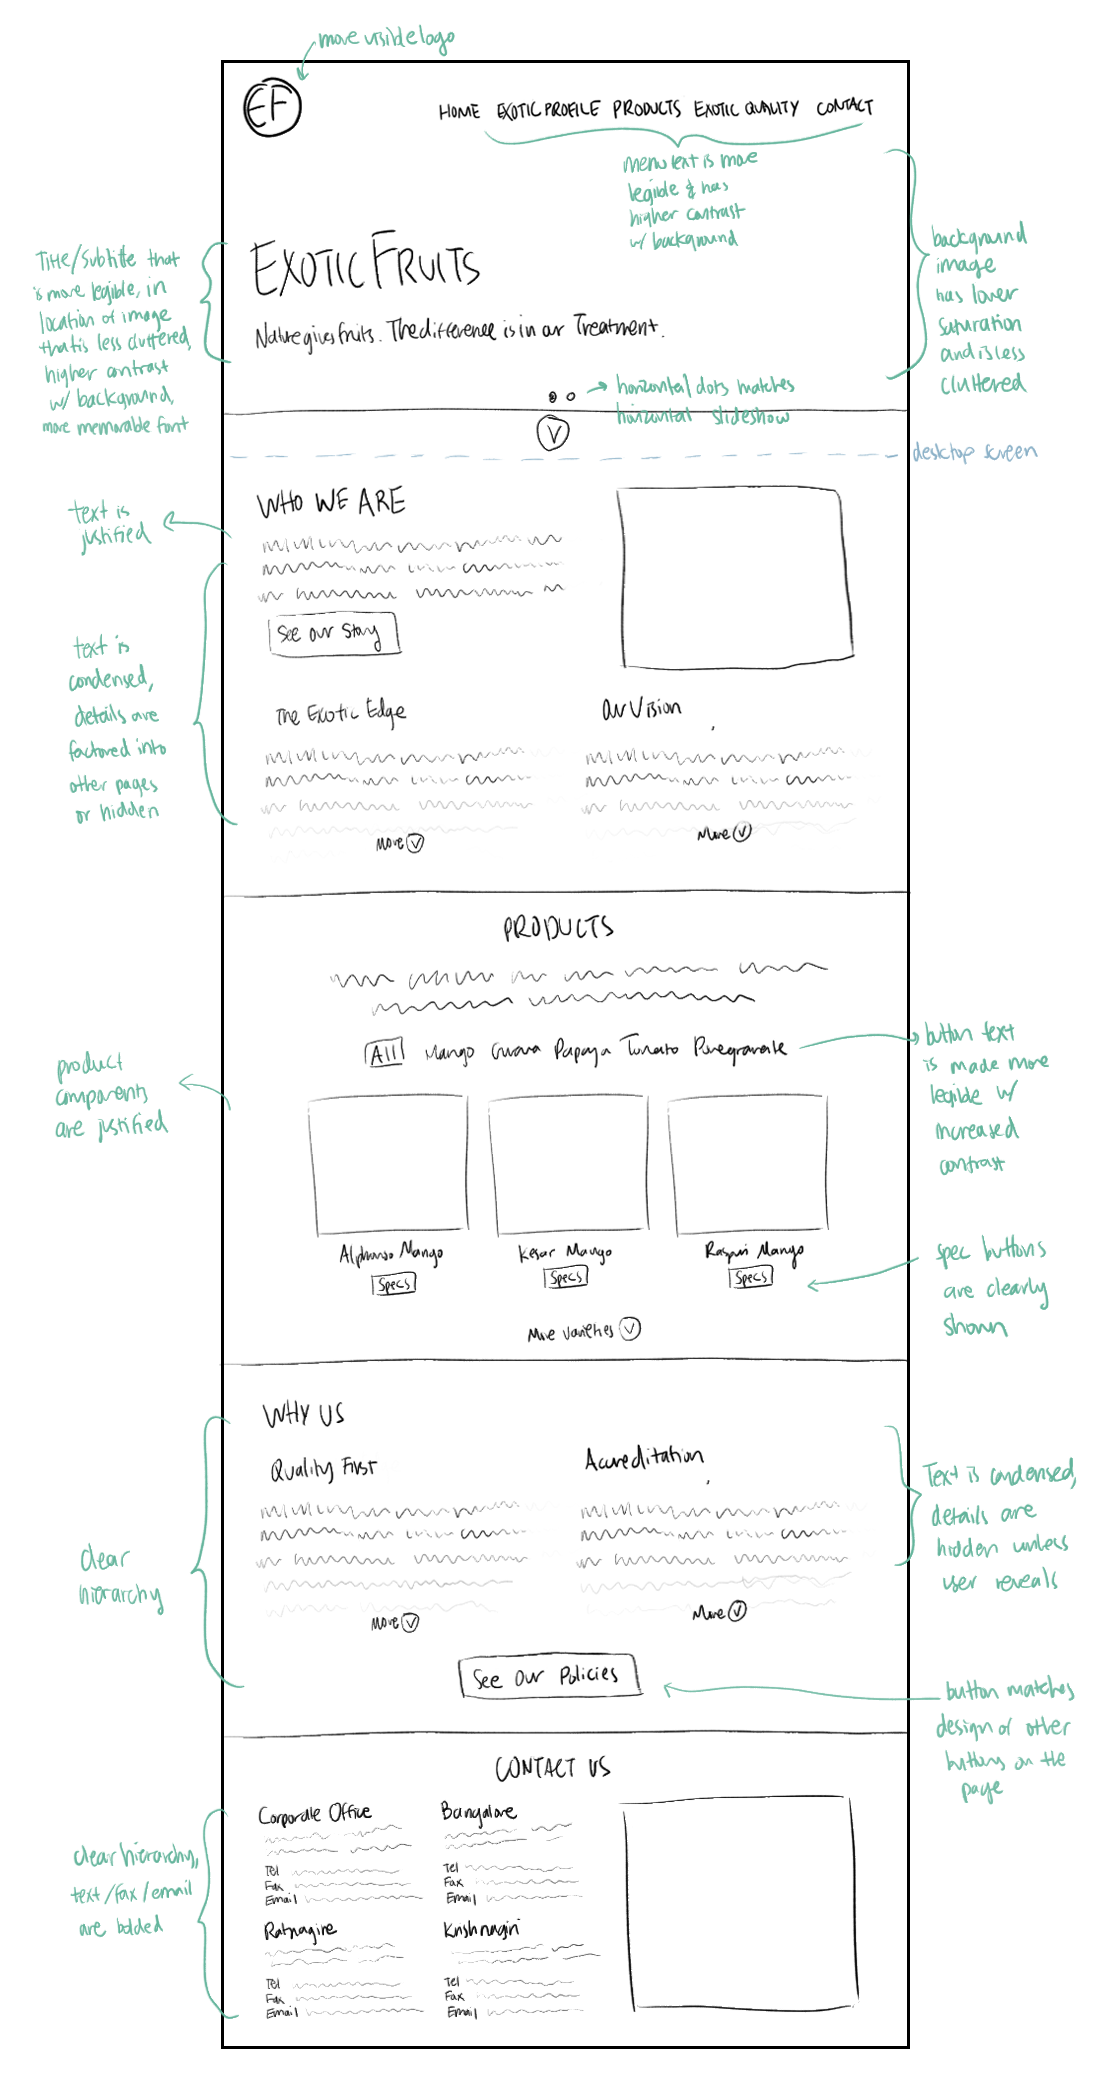 more visible logo
EF
HOME EXOTIC PROFILE PRODUCTS EXOTIC QUALITY CONTACT
menu text is more
legible & has
higher contrast
w/ background
background
image
has lower
saturation
and is less
cluttered
Title/Subtitle that
is more legible, in
location of image
that is less cluttered,
higher contrast
w/ background,
more memorable font
EXOTIC FRUITS
Nature gives fruits. The difference is in our Treatment.
horizontal dots matches
horizontal slideshow
desktop screen
text is
justified
WHO WE ARE
See our Story
text is
condensed,
details are
factored into
other pages
or hidden
The Exotic Edge
Our Vision
More
More
PRODUCTS
All Mango Guava Papaya Tomato Pomegranate
button text
is made more
legible w/
increased
contrast
product
components
are justified
Alphonso Mango
Kesar Mango
Raspuri Mango
Specs
Specs
Specs
spec buttons
are clearly
shown
More varieties
WHY US
Quality First
Accreditation
Text is condensed,
details are
hidden unless
user reveals
clear
hierarchy
More
More
See Our Policies
button matches
design of other
buttons on the
page
CONTACT US
Corporate Office
Bangalore
Tel
Fax
Email
Tel
Fax
Email
clear hierarchy,
text/fax/email
are bolded
Ratnagire
Krishnagiri
Tel
Fax
Email
Tel
Fax
Email